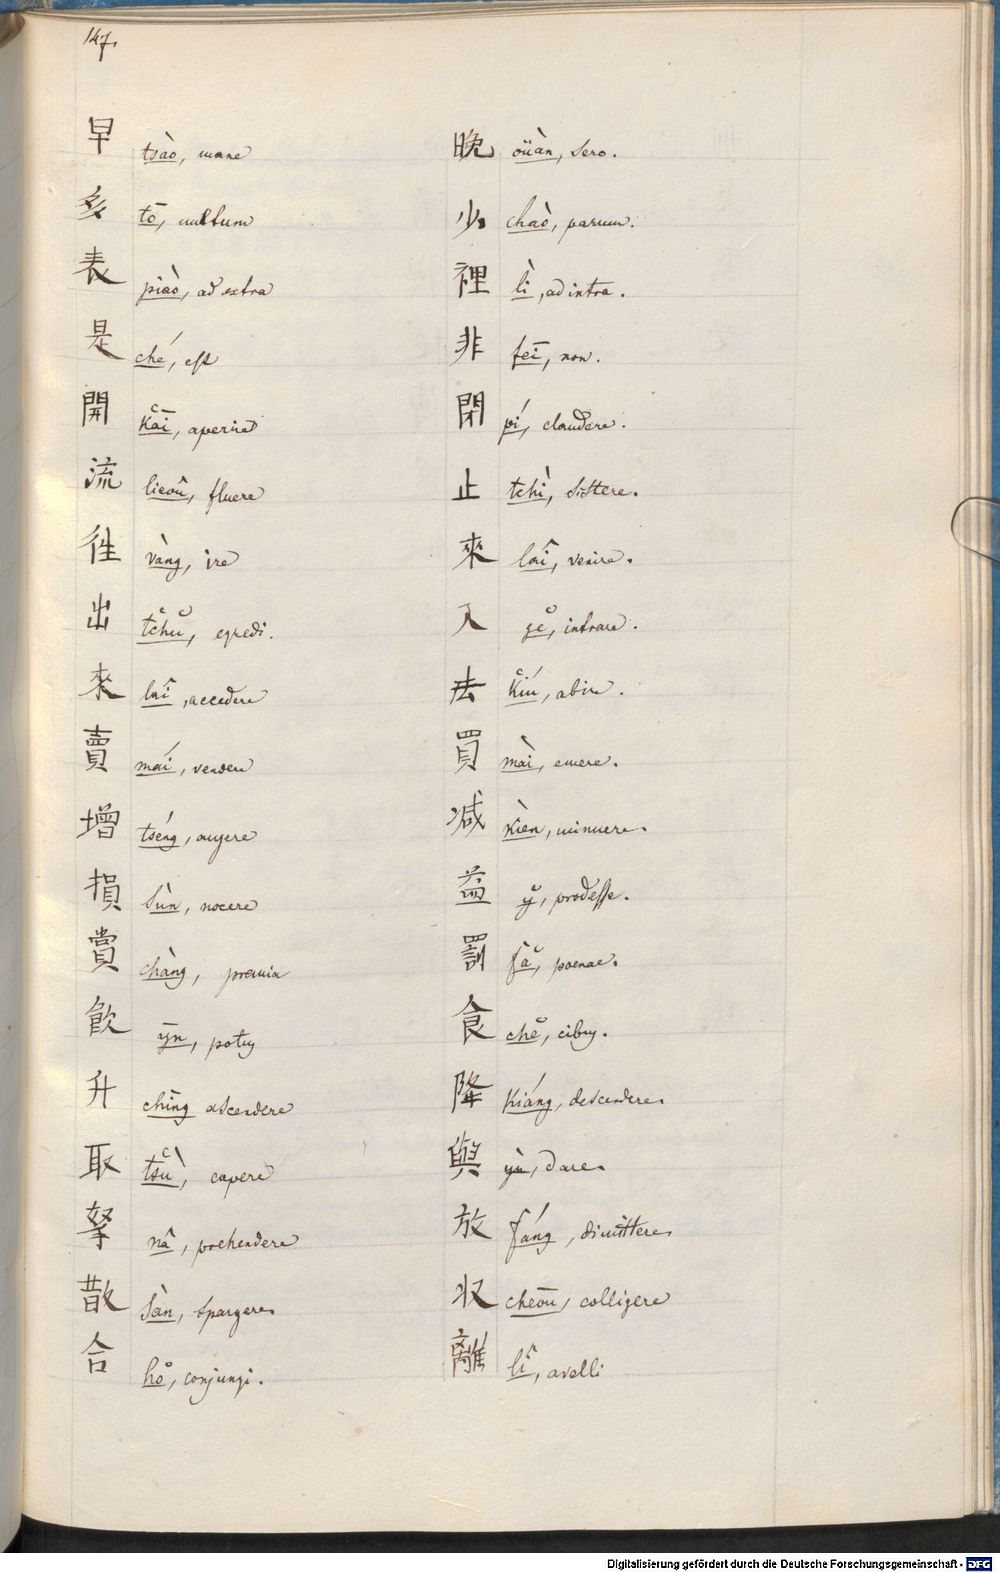 147.
早 tsào, mane 晚 oüàn, sero.
多 tō, multum 少 chaò, parum.
表 piào, ad extra 裡 lì, ad intra.
是 ché, est 非 feī, non.
開 k̔aī, aperire 閉 pí, claudere.
流 lieoû, fluere 止 tchì, sistere.
徃 vàng, ire 來 laî, venire.
出 tc̔hŭ, egredi. 入 gĕ, intrare.
來 laî, accedere 去 k̔iú, abire.
賣 maí, vendere 買 mài, emere.
增 tséng, augere 减 kièn, minuere.
損 sùn, nocere 益 y̆, prodesse.
賞 chàng, premia 罰 fă, poenae.
飲 ȳn, potus 食 chĕ, cibus.
升 chīng ascendere 降 kiáng, descendere.
取 ts̔ù, capere 與 yù, dare.
拏 nâ, prehendere 放 fáng, dimittere.
散 sàn, spargere. 收 cheōu, colligere
合 hŏ, conjungi. 離 lî, avelli
Digitalisierung gefördert durch die Deutsche Forschungsgemeinschaft - DFG